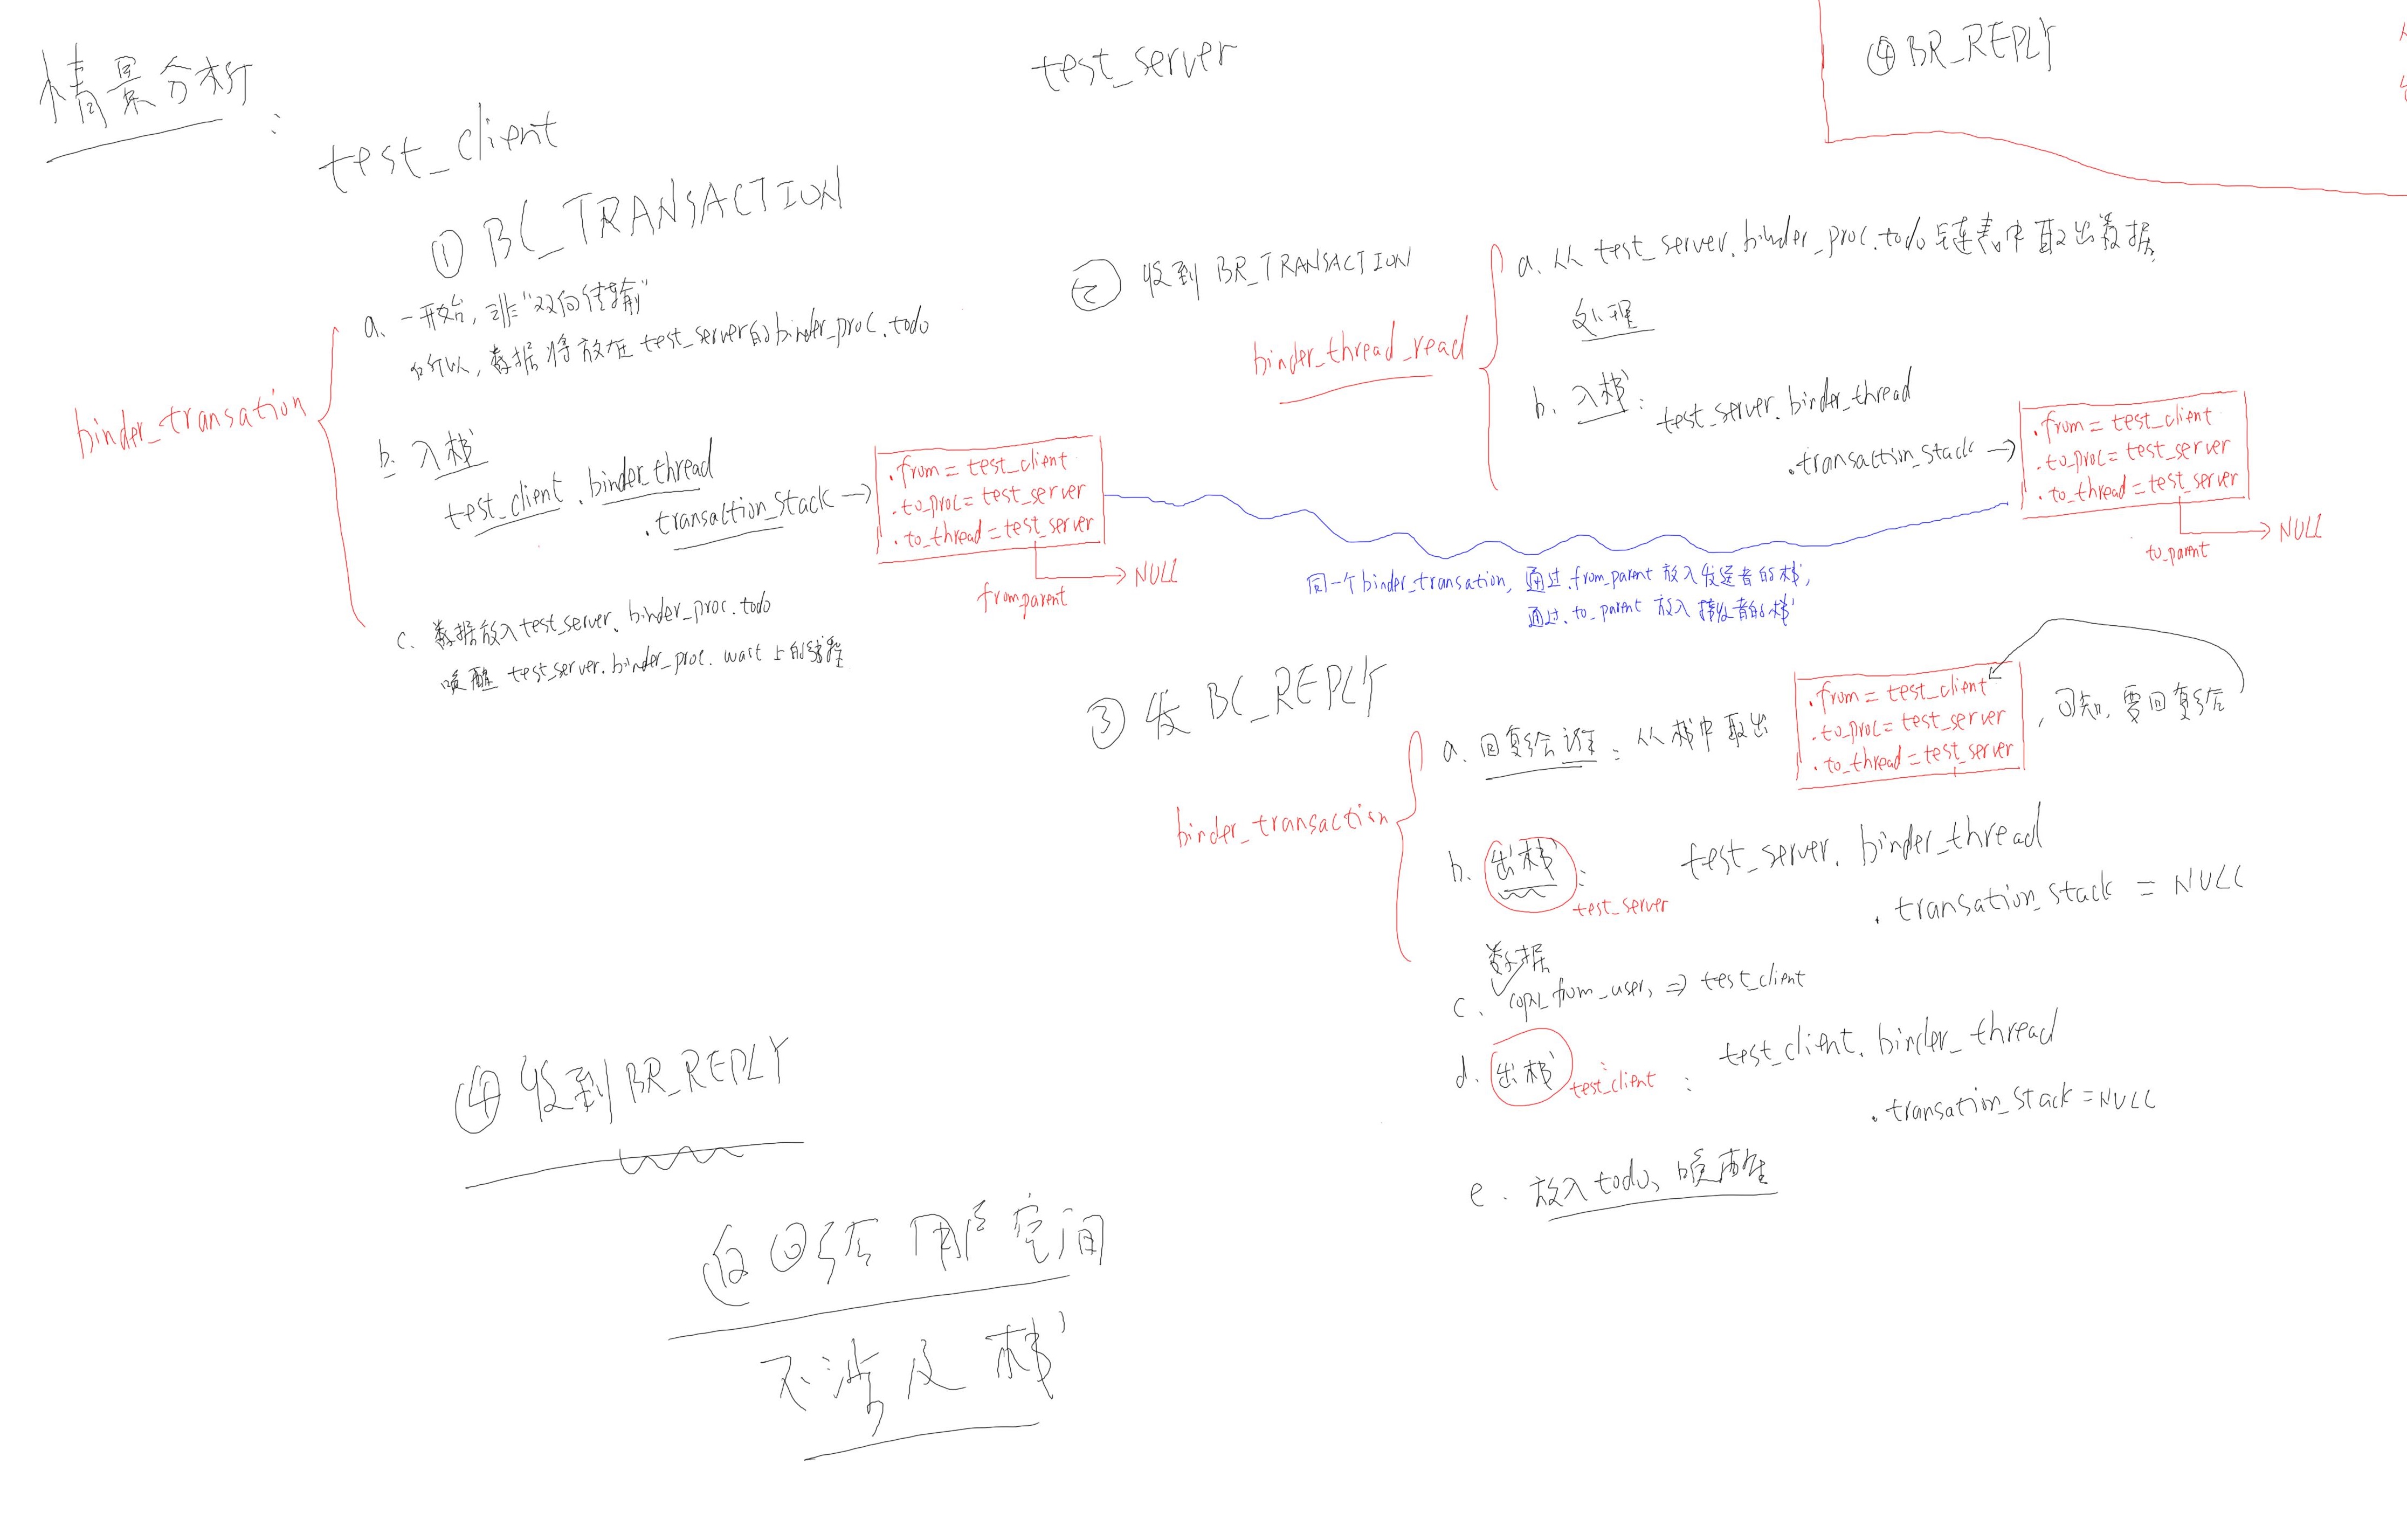 情景分析:
test_client
① BC_TRANSACTION
binder_transation
a. 一开始, 非"双向传输"
所以, 数据将放在 test_server的binder_proc.todo
b. 入栈
test_client.binder_thread
.transaction_stack →
.from = test_client
.to_proc = test_server
.to_thread = test_server
from parent
NULL
c. 数据放入test_server.binder_proc.todo
唤醒 test_server.binder_proc.wait上的线程
test_server
② 收到 BR_TRANSACTION
binder_thread_read
a. 从 test_server.binder_proc.todo 链表中取出数据,
处理
b. 入栈: test_server.binder_thread
.transaction_stack →
.from = test_client
.to_proc = test_server
.to_thread = test_server
to_parent
NULL
同一个binder_transation, 通过.from_parent 放入发送者的栈,
通过.to_parent 放入接收者的栈
③ 发 BC_REPLY
binder_transaction
a. 回复给谁: 从栈中取出
.from = test_client
.to_proc = test_server
.to_thread = test_server
, 可知, 要回复给
b. 出栈:
test_server
test_server.binder_thread
.transation_stack = NULL
数据
c. copy_from_user, ⇒ test_client
d. 出栈
test_client :
test_client.binder_thread
.transation_stack = NULL
e. 放入todo, 唤醒
④ 收到 BR_REPLY
返回给用户空间
不涉及栈
④ BR_REPLY